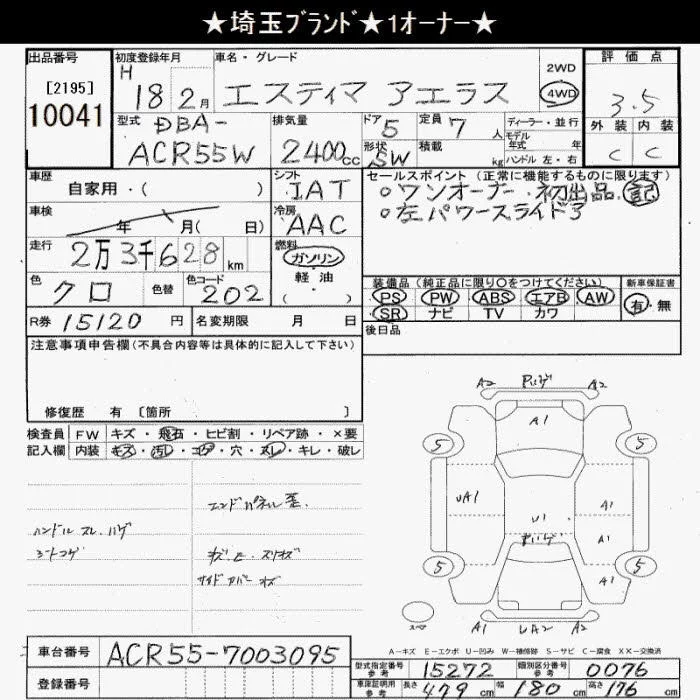 ★埼玉ブランド★1オーナー★
出品番号 初度登録年月 車名・グレード 評価点
[2195]
10041
H 18 2月 エスティマ アエラス 2WD 4WD 3.5
型式 DBA-ACR55W 排気量 2400cc ドア 5 定員 7人 ディーラー・並行 外装 内装
形状 SW 積載 kg モデル年式 年 ハンドル 左・右 C C
車歴 自家用・( ) シフト IAT セールスポイント(正常に機能するものに限ります)
○ワンオーナー・初出品 記
○左パワースライドア
車検 年 月( 日) 冷房 AAC
走行 2万3千628km 燃料 ガソリン 軽・油 ( )
色 クロ 色替 色コード 202
装備品(純正品に限り○をつけてください) 新車保証書
PS PW ABS エアB AW 有・無
SR ナビ TV カワ
R券 15120円 名変期限 月 日 後日品
注意事項申告欄(不具合内容等は具体的に記入して下さい)
修復歴 有 [箇所 ]
検査員 FW キズ・飛石・ヒビ割・リペア跡・×要
記入欄 内装 キズ・汚レ・コゲ・穴・スレ・キレ・破レ
エンドパネル歪.
ハンドル スレ ハゲ
シートコゲ
A2 A2
A1
5 5
UA1 A1
U1 A1
A1
5 5
スペア
A1 UA2 A1
A－キズ E－エクボ U－凹み W－補修跡 S－サビ C－腐食 XX－交換済
車台番号 ACR55-7003095
登録番号
型式指定番号 参考 15272 類別区分番号 参考 0076
車庫証明用 参考 長さ 479cm 幅 180cm 高さ 176cm